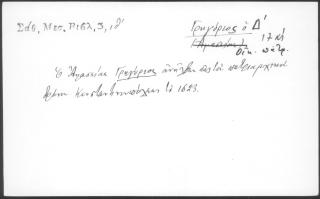 Σάθ, Μεσ. Βιβλ, 3, ιθ'
Γρηγόριος ὁ Δ'
(Ἀμασείας)
17 αἰ
Οἰκ. πατρ.
Ὁ Ἀμασείας Γρηγόριος ἀνῆλθεν εἰς τὸν πατριαρχικὸν
θρόνον Κωνσταντινουπόλεως τῷ 1623.